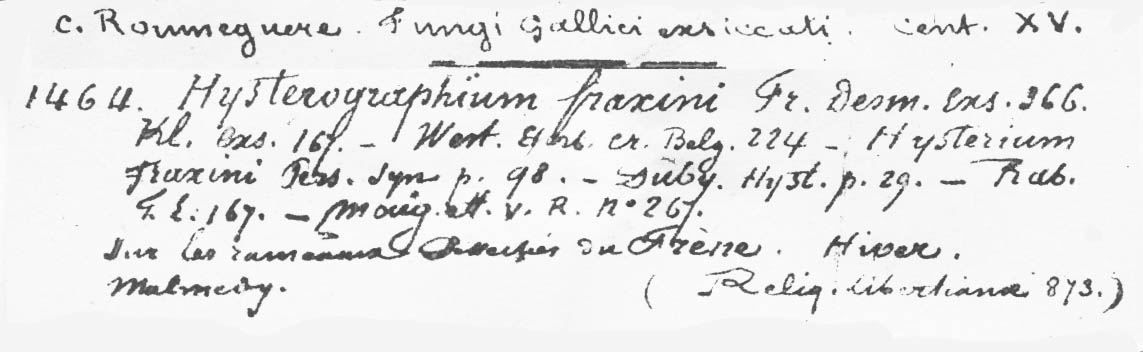 C. Roumeguere. Fungi Gallici exsiccati. Cent. XV.
1464. Hysterographium fraxini Fr. Desm. Exs. 366.
Kl. exs. 167. – West. Herb. cr. Belg. 224 – Hysterium
fraxini Pers. Syn p. 98. – Duby. Hyst. p. 29. – Rab.
F. E. 167. – Moug. et. N. n° 267.
Sur les rameaux desséchés du Frêne. Hiver.
Malmedy. (Reliq. Libertianae 873.)